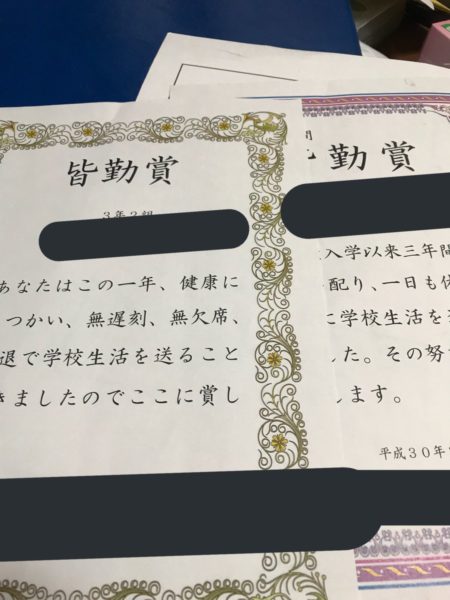 皆勤賞
３年２組
あなたはこの一年、健康に
つかい、無遅刻、無欠席、
退で学校生活を送ること
きましたのでここに賞し
勤賞
入学以来三年間
配り、一日も休
に学校生活を
した。その努
します。
平成３０年